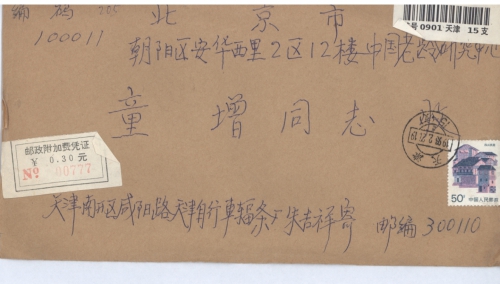 编码
北京市
100011
朝阳区安华西里2区12楼中国老龄研究中心
童增同志 收
0901 天津 15支
邮政附加费凭证
¥ 0.30元
№ 00777
50分 中国人民邮政
天津南开区咸阳路天津自行车辐条厂朱吉祥寄
邮编300110